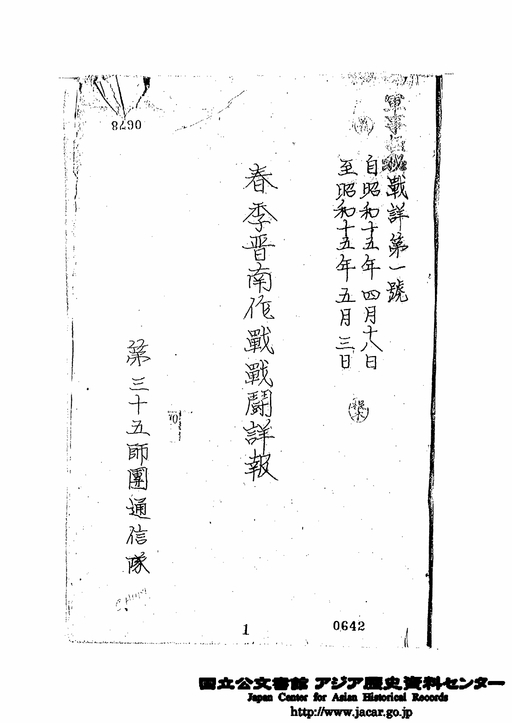 軍事極秘
戰詳第一號
自昭和十五年四月十八日
至昭和十五年五月三日
春季晋南作戰戰鬪詳報
第三十五師團通信隊
8690
1
0642
国立公文書館 アジア歴史資料センター
Japan Center for Asian Historical Records
http://www.jacar.go.jp